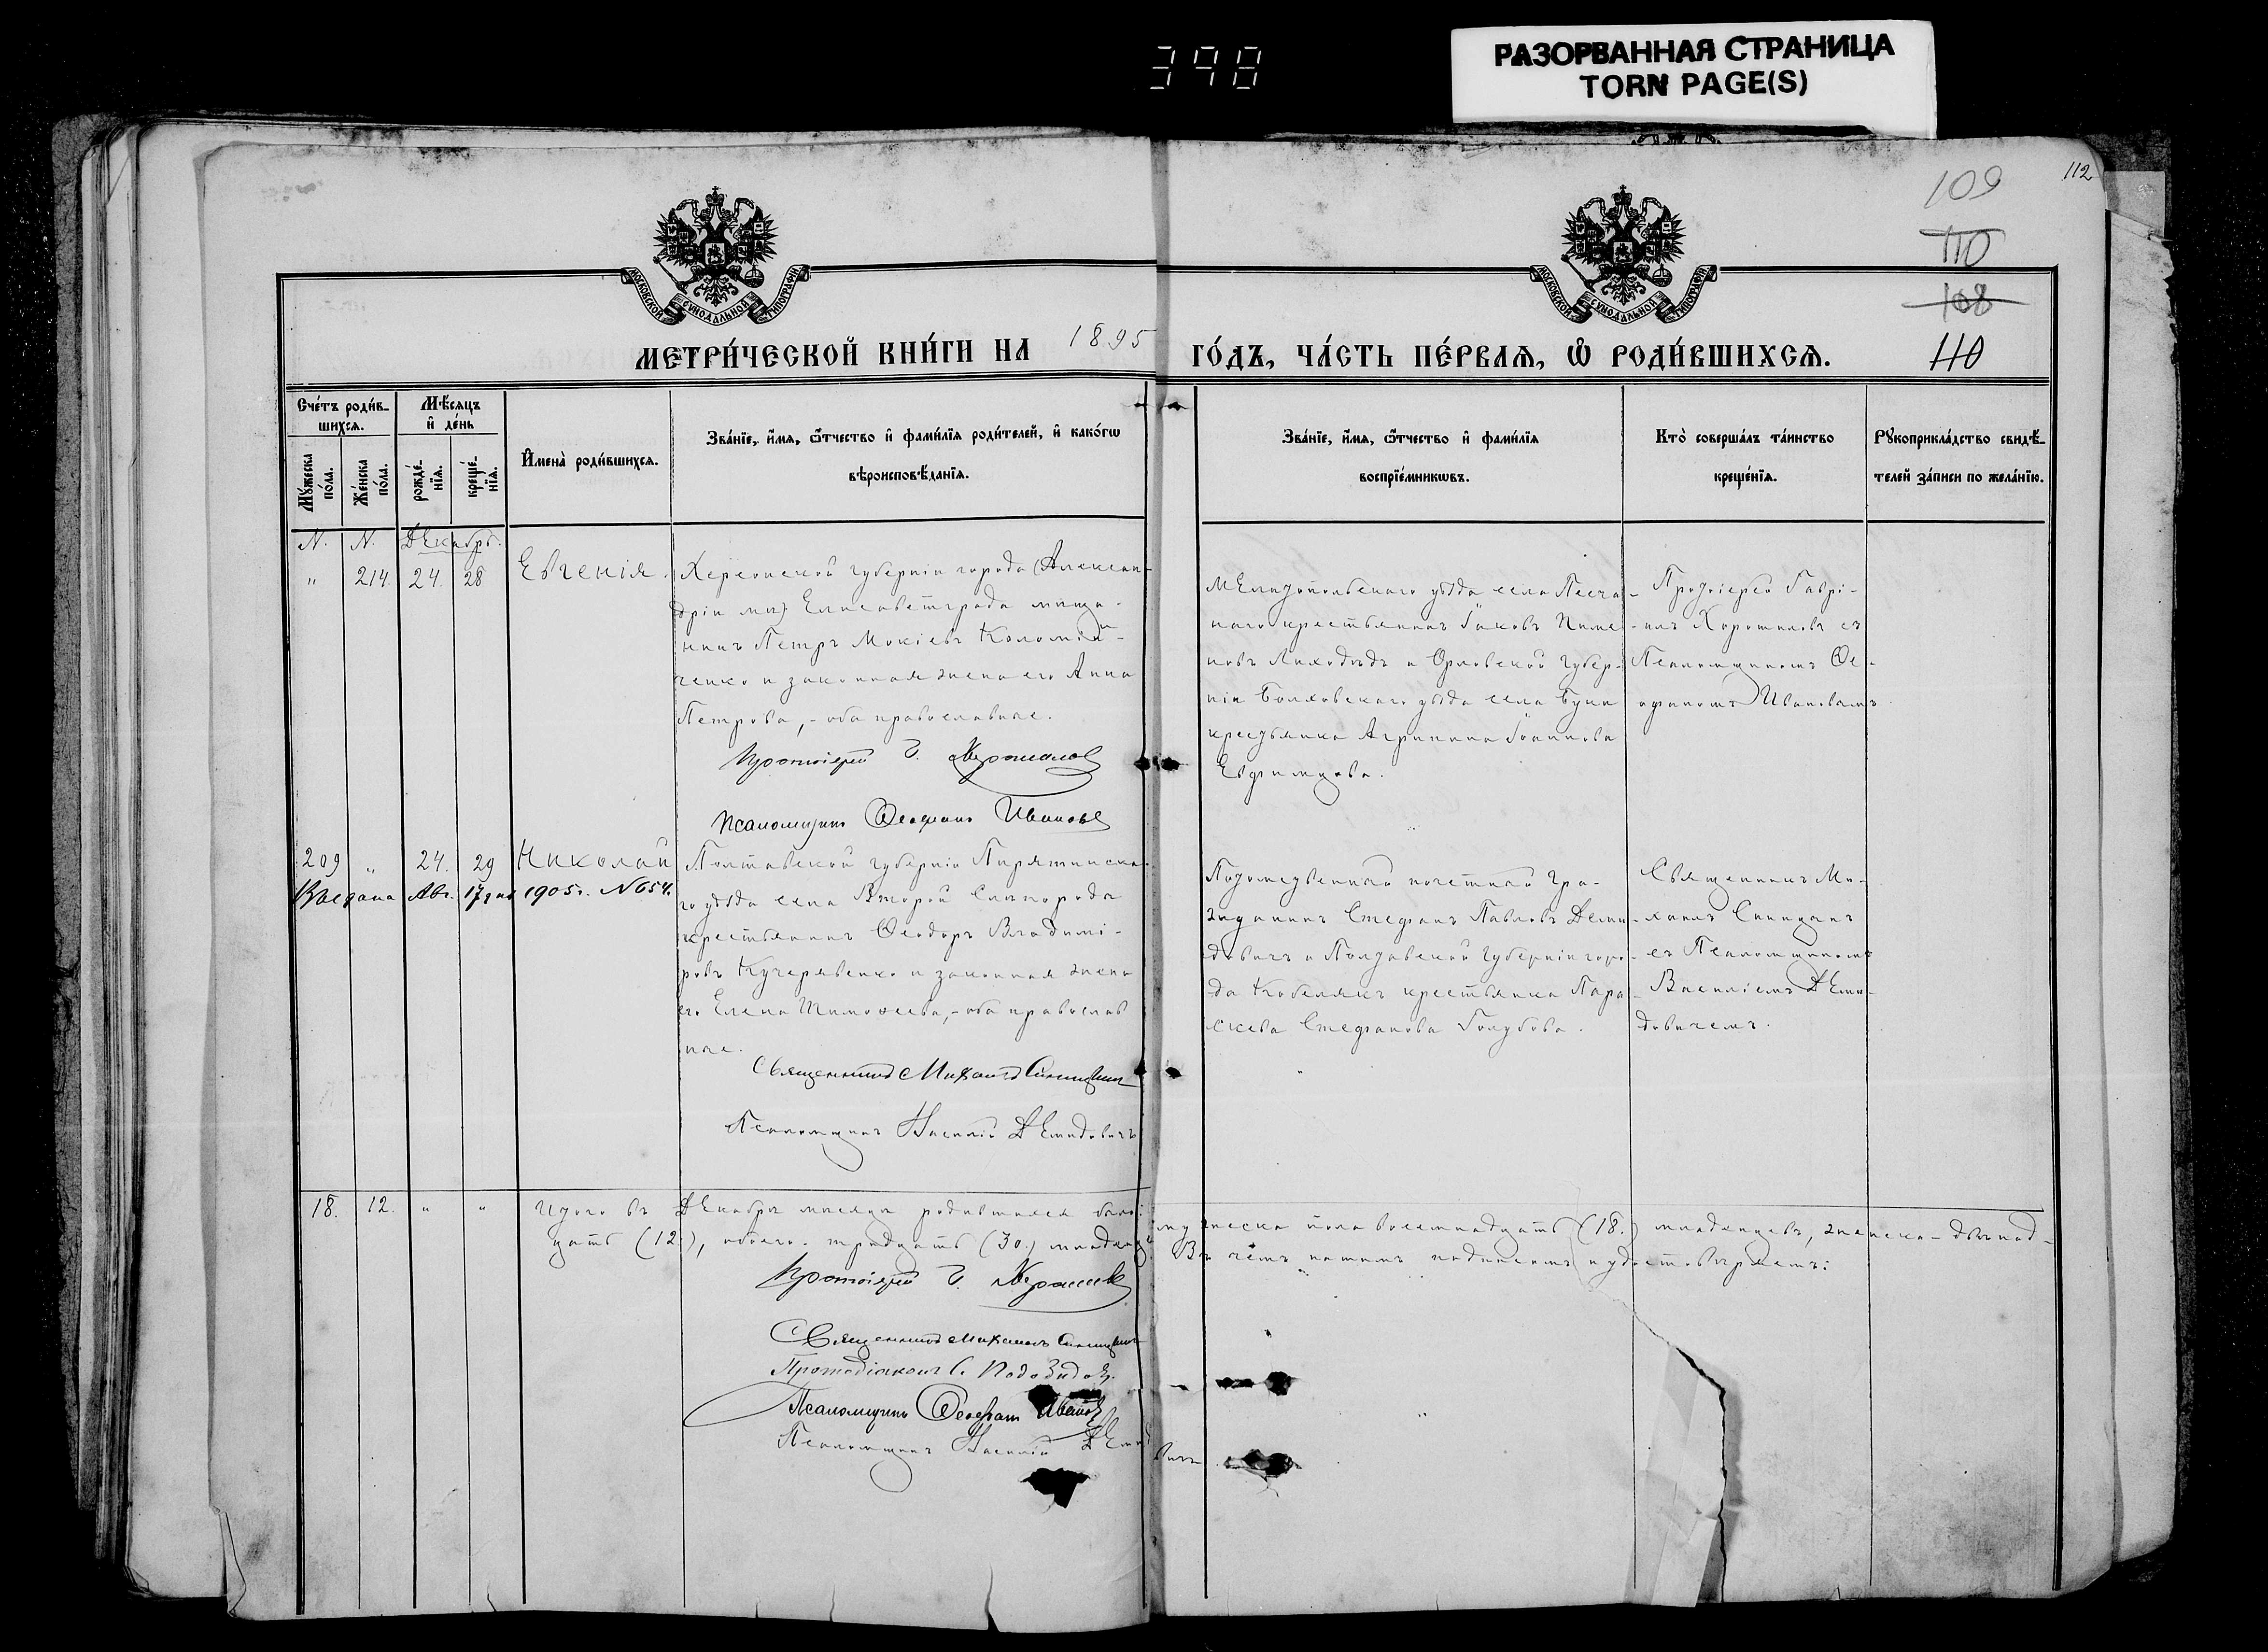 398
РАЗОРВАННАЯ СТРАНИЦА
TORN PAGE(S)
112
109
110
108
110
МОСКОВСКОЙ СУНОДАЛЬНОЙ ТИПОГРАФІИ
МОСКОВСКОЙ СУНОДАЛЬНОЙ ТИПОГРАФІИ
МЕТРИ́ЧЕСКОЙ КНИ́ГИ НА 1895 ГО́ДЪ, ЧА́СТЬ ПЕ́РВАѦ, Ѡ РОДИ́ВШИХСѦ.
Сче́тъ роди́в-
шихсѧ.
Мѣ́сѧцъ
и де́нь
Му́жеска
по́ла.
Же́нска
по́ла.
рожде́-
нїѧ.
креще́-
нїѧ.
Имена̀ роди́вшихсѧ.
Зва́нїе, и́мѧ, ѻ́тчество и фами́лїѧ роди́телей, и како́гѡ
вѣроисповѣ́данїѧ.
Зва́нїе, и́мѧ, ѻ́тчество и фами́лїѧ
воспрїе́мникѡвъ.
Кто̀ соверша́лъ та́инство
креще́нїѧ.
Рꙋкоприкла́дство свидѣ́-
телей за́писи по жела́нїю.
N. N. Декабрь.
" 214. 24. 28 Евгенія.
Херсонской губерніи города (Алексан-
дріи мн) Елисаветграда мѣща-
нинъ Петръ Мокіевъ Коломій-
ченко и законная жена его Анна
Петрова, - оба православные.
Протоіерей Г. Хорошиловъ
Псаломщикъ Ѳеофанъ Ивановъ
Мелитопольскаго уѣзда села Песча-
наго крестьянинъ Іаковъ Пиме-
новъ Лиходѣдъ и Орловской губер-
ніи Болховскаго уѣзда села
крестьянка Агрипина Іоаннова
Протоіерей Гаврі-
илъ Хорошиловъ съ
Псаломщикомъ Ѳе-
офаномъ Ивановымъ
209 " 24. 29 Николай
Выдана Авг. 17 дня 1905 г. N 654.
Полтавской губерніи Пирятинска-
го уѣзда села Второй Слѣпорода
крестьянинъ Ѳеодоръ Владимі-
ровъ Кучерявенко и законная жена
его Елена Тимоѳеева, - оба православ
ные.
Священникъ Михаилъ Синицынъ
Псаломщикъ Василій Демидовичъ
Потомственный почетный гра-
жданинъ Стефанъ Павловъ Деми-
довичъ и Полтавской губерніи горо-
да Кобелякъ крестьянка Пара-
скева Стефанова Голубова.
Священникъ Ми-
хаилъ Синицынъ
съ Псаломщикомъ
Василіемъ Деми-
довичемъ.
18. 12. " " Итого въ Декабрѣ мѣсяцѣ родившихся было: мужеска пола восемнадцать (18.) младенцевъ, женска - двѣнад-
цать (12), обоего - тридцать (30) младенц. Въ чемъ нашимъ подписомъ и удостовѣряемъ:
Протоіерей Г. Хорошиловъ
Священникъ Михаилъ Синицынъ
Протодіаконъ
Псаломщикъ Ѳеофанъ Ивановъ
Псаломщикъ Василій Демидовичъ